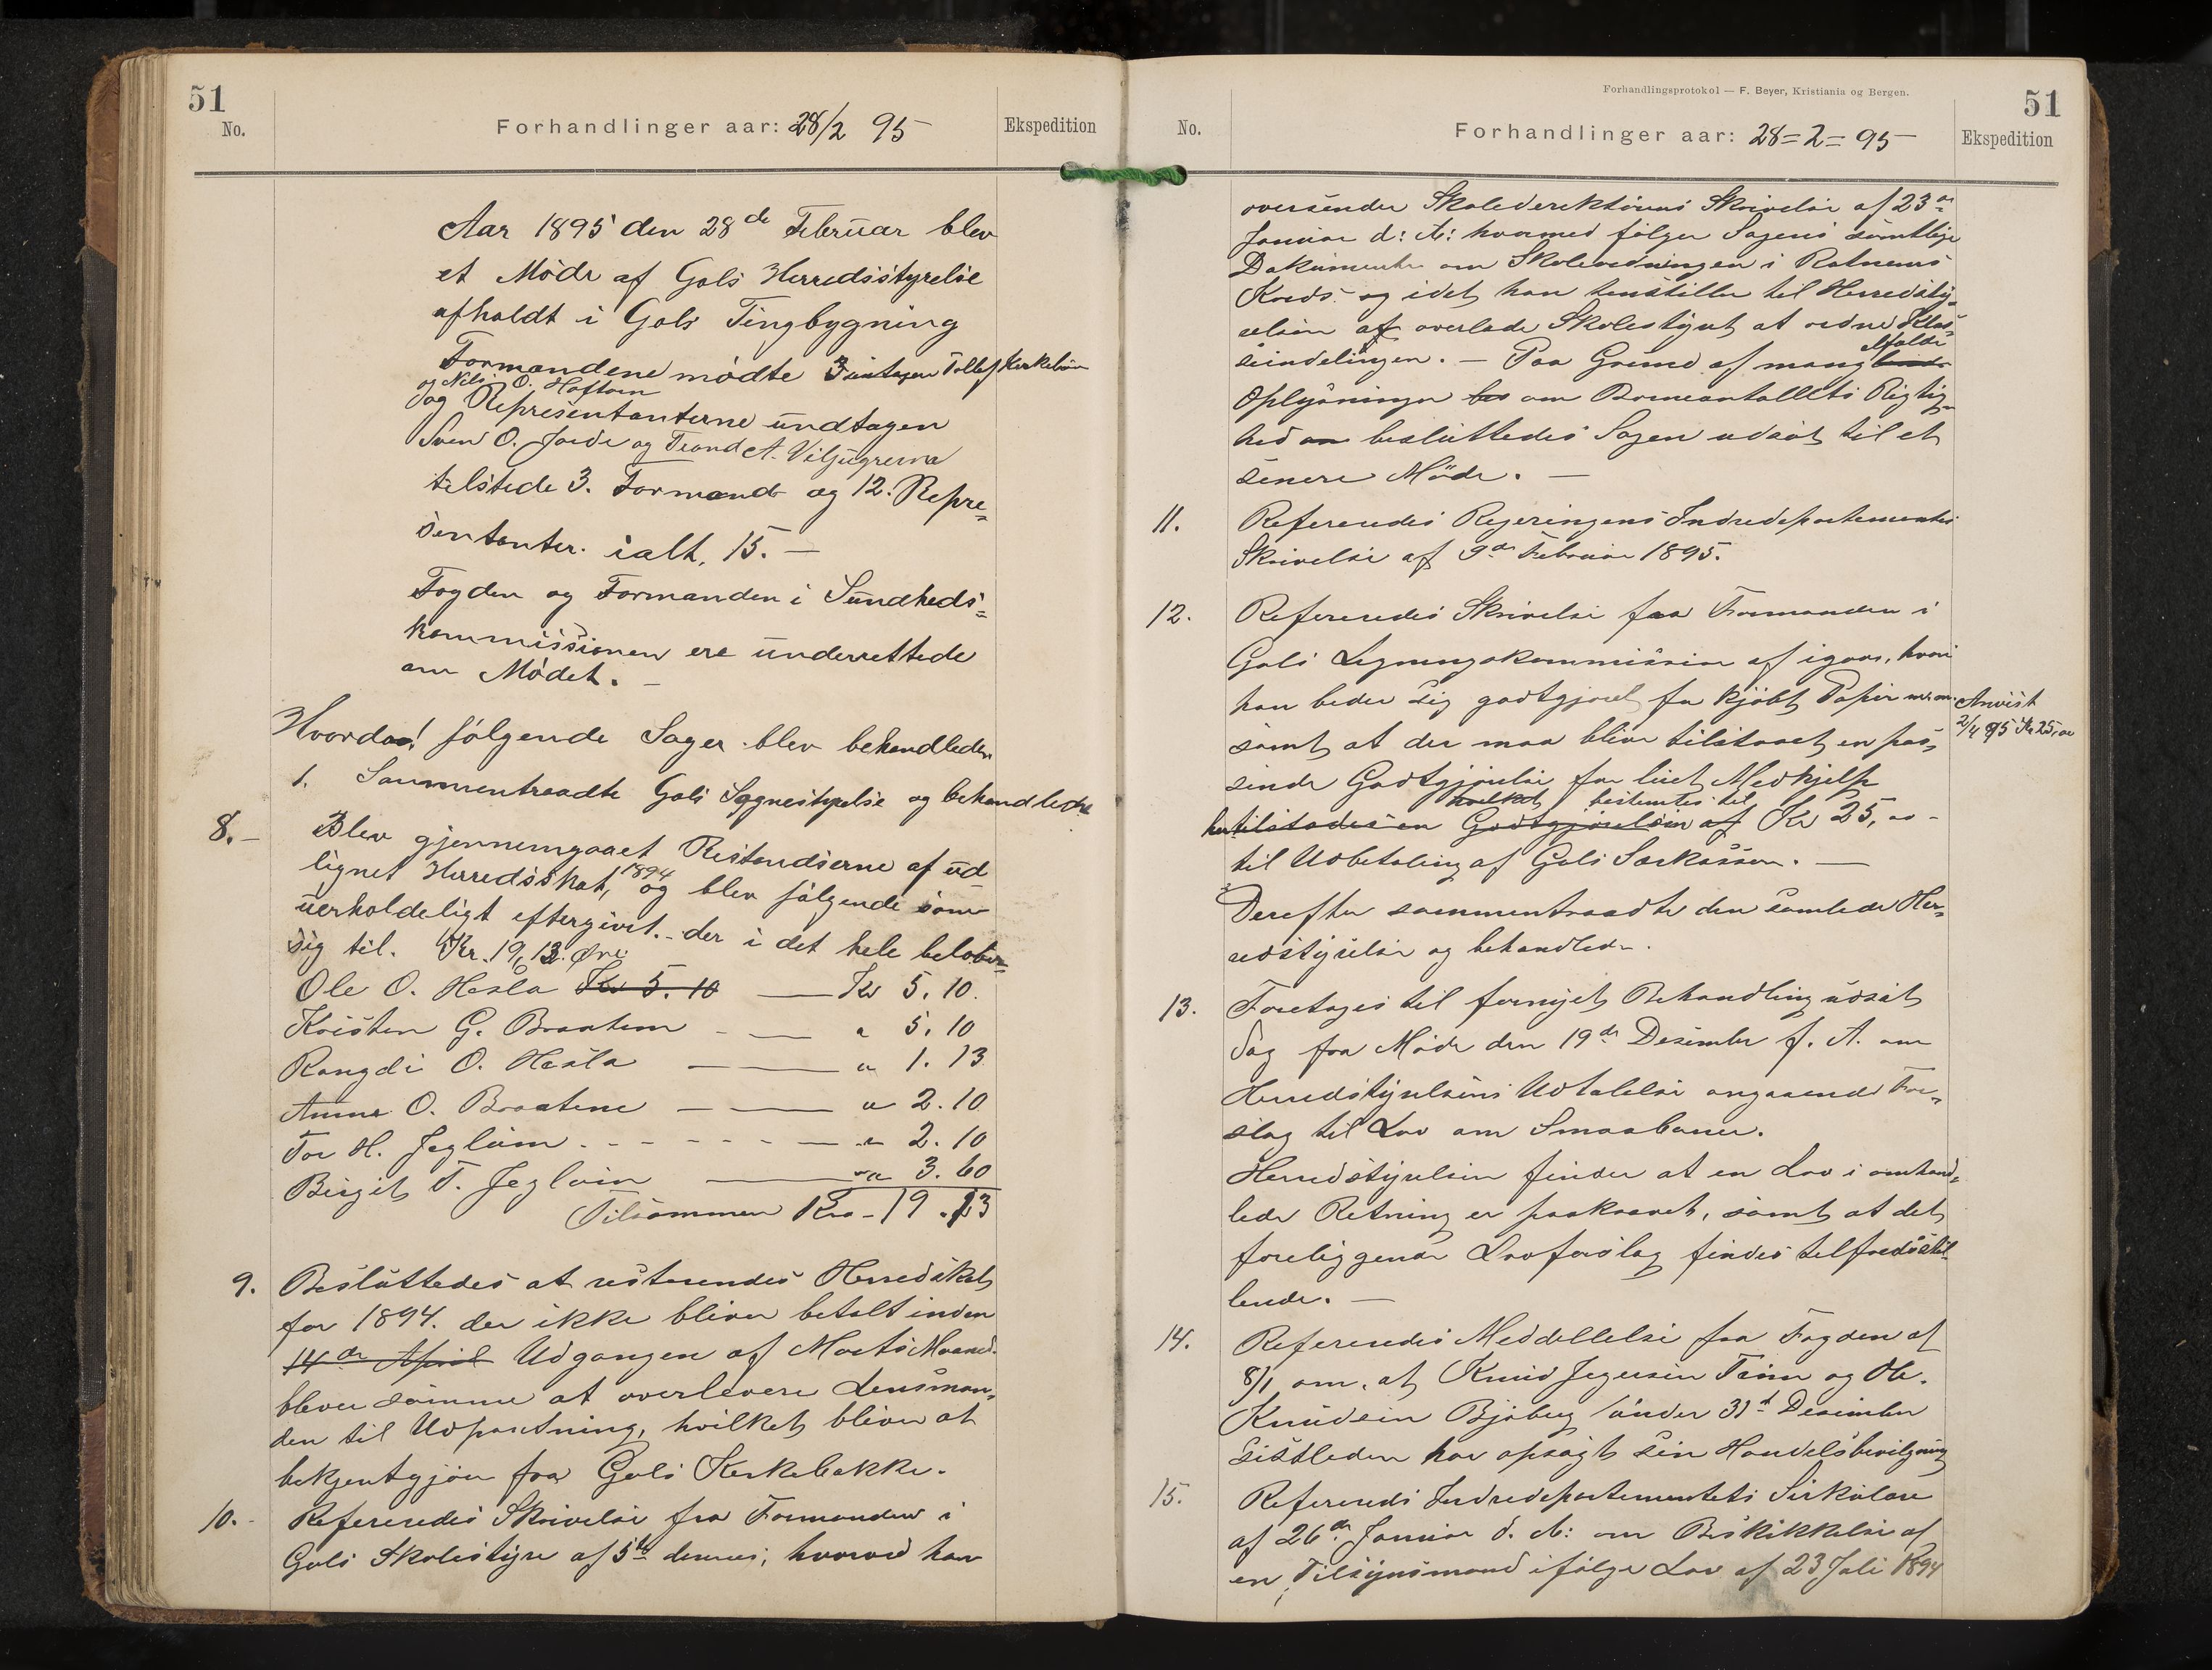 51
No.
Forhandlinger aar: 28/2 95
Ekspedition
Aar 1895 den 28de Februar blev
et Møde af Gols Herredsstyrelse
afholdt i Gols Tingbygning
Formandene mødte undtagen Tollef Kirkebøn
og Nels O. Hoftom
og Representanterne undtagen
Sven O. Jorde og Trond A. Viljugrerna
tilstede 3. Formænd og 12. Repre=
sentanter. ialt, 15. —
Fogden og Formanden i Sundheds=
kommissionen ere underrettede
om Mødet. —
Hvorda! følgende Sager blev behandlede
1. Sammentraadte Gols Sognestyrelse og behandlede
8. — Blev gjennemgaaet Restandserne af ud
lignet Herredsskat, 1894 og blev følgende som
uerholdeligt eftergivet. der i det hele beløber
sig til. Kr. 19,13. Øre
Ole O. Hesla Kr 5.10 — Kr 5.10.
Kristen G. Braaten — " 5.10
Rangdi O. Hesla — " 1.13
Anne O. Braatene — " 2.10
Tor H. Jegleim — " 2.10
Birgit T. Jegleim — " 3.60
Tilsammen Kr — 19.13
9. Besluttedes at resterendes Herredskat
for 1894. der ikke bliver betalt inden
14de April Udgangen af Marts Maaned.
blever samme at overlevere Lensman,
den til Udpantning, hvilket bliver at
bekjentgjøre fra Gols Kirkebakke.
10. - Refereredes Skrivelse fra Formanden i
Gols Skolestyre af 5te dennes, hvorved han
Forhandlingsprotokol — F. Beyer, Kristiania og Bergen.
51
No.
Forhandlinger aar: 28=2=95—
Ekspedition
oversender Skoledirektørens Skrivelse af 23de
Januar d: A: hvormed følger Sagens samtlige
Dokumenter om Skoleordningen i Rotnems
Kreds og idet han henstiller til Herredsty,
relsen at overlade Skolestyret at ordne Klas,
seindelingen. — Paa Grund af mangelfulde
Oplysninger om Børneantallets Rigtig,
hed besluttedes Sagen udsat til et
senere Møde. —
11. Refereredes Regjeringens Indredepartementes
Skrivelse af 9de Februar 1895.
12. Refereredes Skrivelse fra Formanden i
Gols Ligningskommission af igaar, hvori
han beder sig godtgjort for kjøbt Papir m.m.
Anvist
2/4 95 Kr 25,00
samt at der maa blive tilstaaet en pas,
sende Godtgjørelse for leiet Medhjelp
hvilket bestemtes til
tilstodes en Godtgjørelse af Kr 25,00 -
til Udbetaling af Gols Særkassen. —
Derefter sammentraadte den samlede Her,
redstyrelse og behandlede.
13. Foretages til fornyet Behandling udsat
Sag fra Møde den 19de Desember f. A. om
Herredstyrelsens Udtalelse angaaende For,
slag til Lov om Smaabaner.
Herredstyrelsen finder at en Lov i omhand,
lede Retning er paakrævet, samt at det
foreliggende Lovforslag findes tilfredsstil
lende. —
14. Refereredes Meddellelse fra Fogden af
8/1 om, at Knud Jegersen Trøim og Ole.
Knudsen Bjøberg under 31te Desember
sistleden har opsagt sin Handelsbevilgning
15. Refereredes Indredepartementets Sirkulære
af 26de Januar d. A: om Beskikkelse af
en Tilsynsmand ifølge Lov af 23 Juli 1894